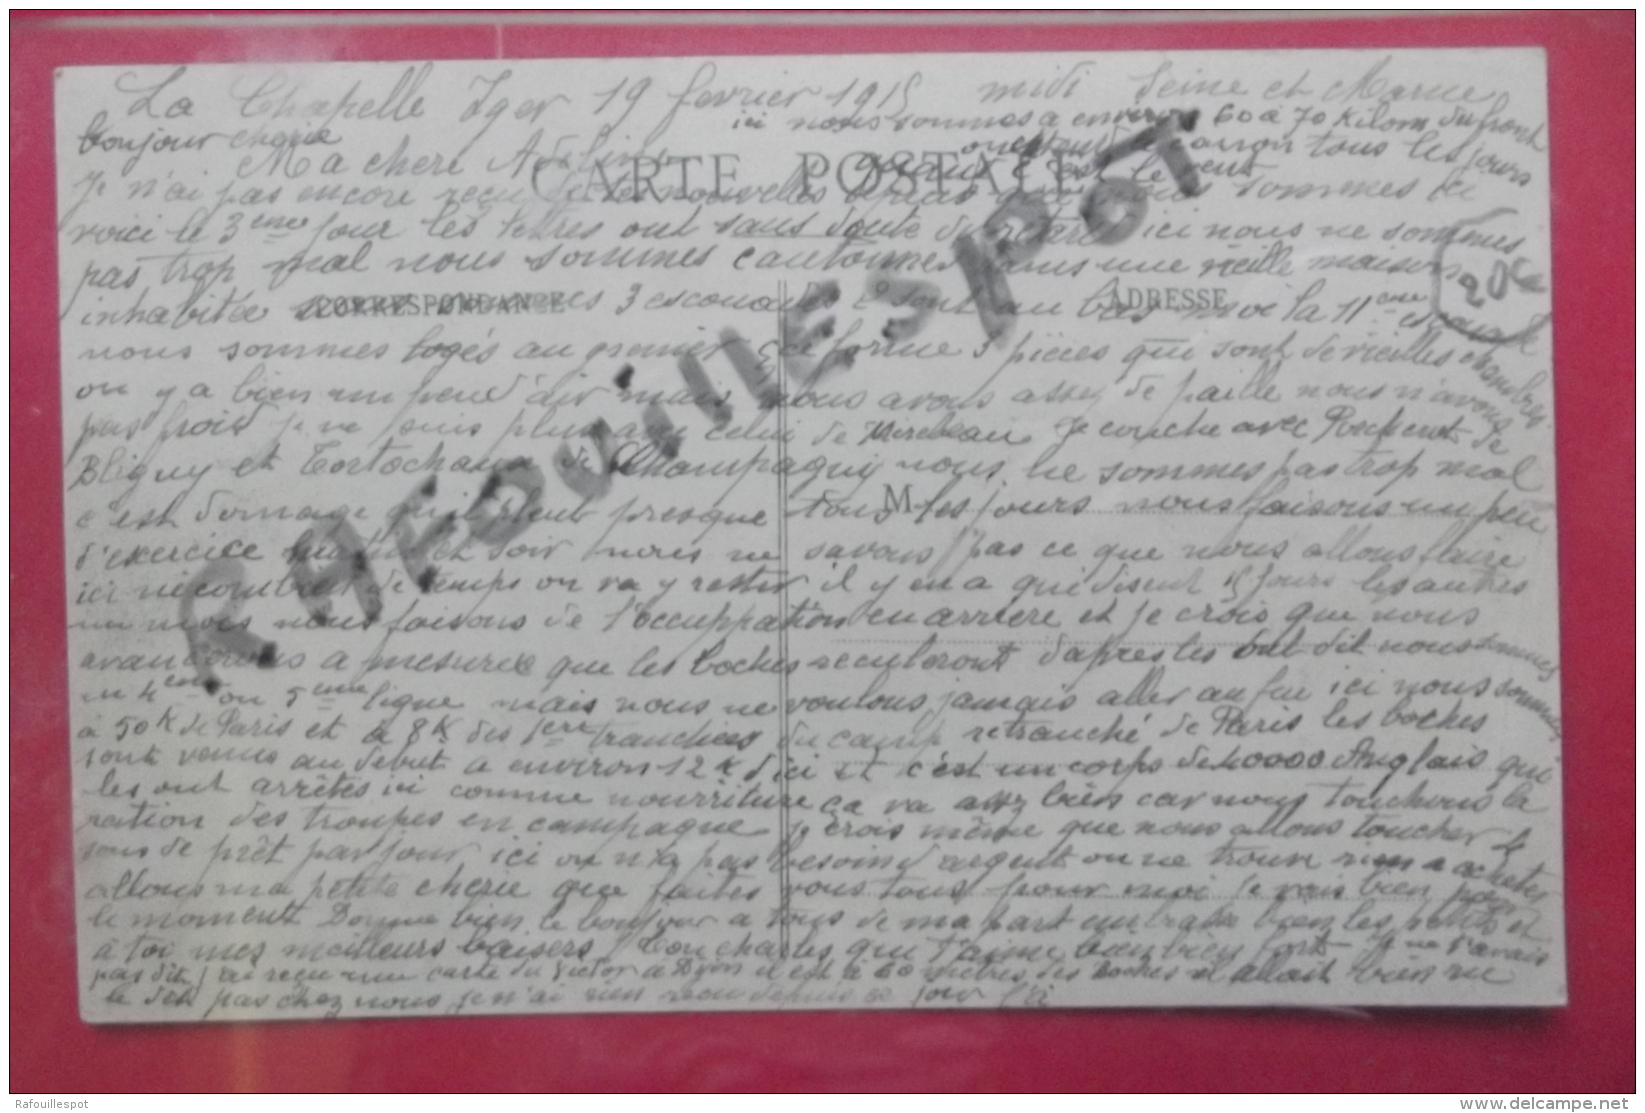 La Chapelle Iger 19 fevrier 1915 midi Seine et Marne
ici nous sommes a environ 60 à 70 Kilom du front
bonjour cherie
on entend le canon tous les jours
Ma cheri Adeline
quand c'est le vent
CARTE POSTALE
Je n'ai pas encore reçu de nouvelles depuis que nous sommes ici
voici le 3eme jour les lettres ont sans doute du retard ici nous ne sommes
pas trop mal nous sommes cantonnes dans une vieille maison
20c
CORRESPONDANCE
ADRESSE
inhabitée nous sommes 3 escouades 2 sont au bas moi la 11eme escouade
nous sommes logés au premier ça forme 3 pièces qui sont de vieilles chambres
on y a bien un peu d'air mais nous avons assez de paille nous n'avons
pas froid je ne suis plus avec celui de Mirebeau je couche avec de
Bligny et Tortochaux de Champagny nous ne sommes pas trop mal
M
c'est domage qu'il pleut presque tous les jours nous faisons un peu
d'exercice matin et soir nous ne savons pas ce que nous allons faire
ici ni combien de temps on va y rester il y en a qui disent 15 jours les autres
un mois nous faisons de l'occuppation en arriere et je crois que nous
avancerons a mesure que les boches reculeront d'apres les on dit nous sommes
en 4eme ou 5eme ligne mais nous ne voulons jamais aller au feu ici nous sommes
à 50 K de Paris et a 8 K des 1ere tranchées du camp retranché de Paris les boches
sont venus au debut a environ 12 K d'ici et c'est un corps de 40000 Anglais qui
les ont arrêtés ici comme nourriture ça va assez bien car nous touchons la
ration des troupes en campagne je crois même que nous allons toucher 4
sous de prêt par jour ici on n'a pas besoin d'argent on ne trouve rien a acheter
allons ma petite cherie que faites vous tous pour moi je vais bien pour
le moment Donne bien le bonjour a tous de ma part embrasse bien les petits et
à toi mes meilleurs baisers Ton charles qui t'aime bien bien fort Je ne t'avais
pas dit j'ai reçu une carte du Victor a Dijon il est à 60 mètres des Boches il allait bien ne
le dit pas chez nous je n'ai rien reçu depuis ce jour là
RAFOUILLESPOT
Rafouillespot
www.delcampe.net